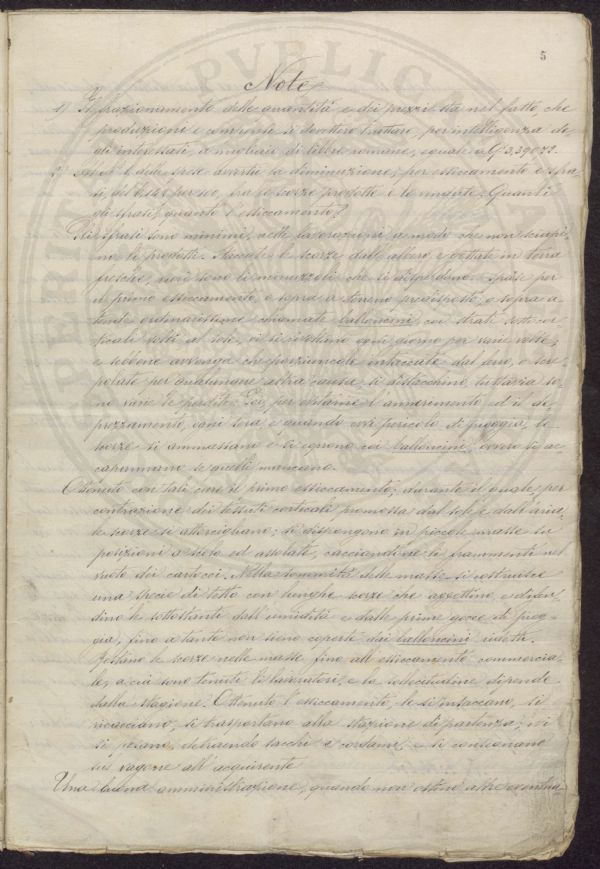 5
Note
1) Il frazionamento delle quantità e dei prezzi sta nel fatto, che
produzioni e compensi si dovettero trattare, per intelligenza de-
gli interessati, a migliaia di libbre romane, eguale a
2) delle spese avvertii la diminuzione, per essiccamento e spra-
ti, del per tra le scorze prodotte e le vendute. Quanti
gli sprati? quanto l'essiccamento?
Gli sprati sono minimi, nelle lavorazioni a modo che non sciupi-
no li prodotti. Staccate le scorze dall'albero, e gettate in terra
fresche, rari sono li minuzzoli che si disperdono. Spase per
il primo essiccamento, o sopra a terreno predisposto, o sopra a
tende ordinarissime chiamate balloncini, con strati
volti a sole, vi si rivoltano ogni giorno per varie volte;
e sebbene avvenga che porziuncole intaccate dal
per qualunque altra causa si distacchino, tuttavia so-
no varie le perdite. Poi, per evitarne l'annerimento ed il di-
sprezzamento, ogni sera, e quando vi è pericolo di pioggia, le
scorze si ammassano e si coprono coi balloncini, ovvero si ac-
capannano se quelli mancano.
Ottenuto con tali cure il primo essiccamento, durante il quale, per
contrazione dei tessuti corticali promossa dal sole e dall'aria,
le scorze si attorcigliano; si dispongono in piccole masse su
posizioni a scolo ed assolate, cacciandone le frammenti nel
vuoto dei cartocci. Nella sommità delle masse si costruisce
una specie di tetto con lunghe scorze che aggettino, e difen-
dino le sottostanti dall'umidità e dalle prime gocce di piog-
gia, fino a tanto non siano coperte dai balloncini ridetti.
Restano le scorze nelle masse fino all'essiccamento commercia-
le, a cui sono tenuti li lavoratori, e la sollecitudine dipende
dalla stagione. Ottenuto l'essiccamento, le si insaccano, si
ricacciano, si trasportano alla stazione di partenza; ivi
si pesano, detraendo sacchi e cordami, e si consegnano
sul vagone all'acquirente.
Una buona amministrazione, quando non ostino altre eventua-